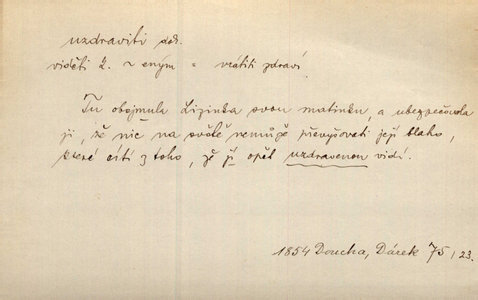 uzdraviti dok.
viděti 2. ~ eným = vrátiti zdraví
Tu objmula Lizinka svou matinku, a ubezpečovala
ji, že nic na světě nemůže převyšovati její blaho,
které cítí z toho, že ji opět uzdravenou vidí.
1854 Doucha, Dárek 75/23.